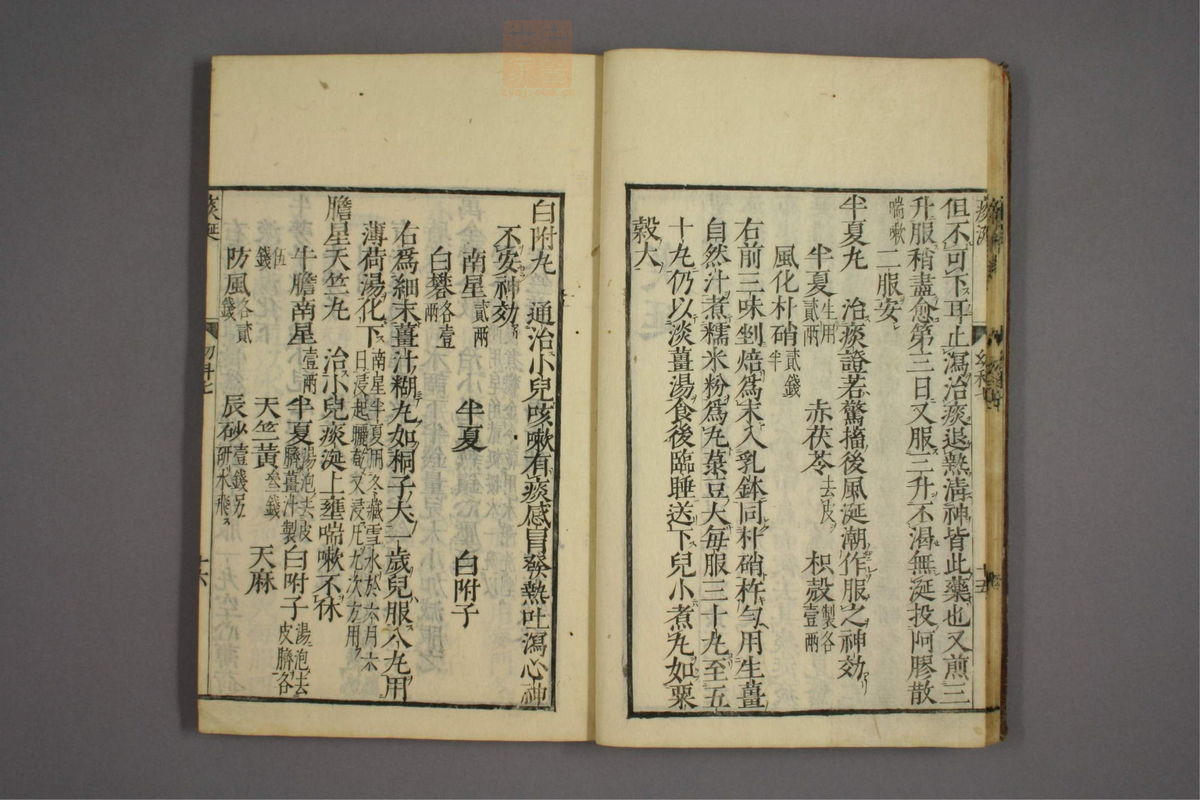 但不可下耳止瀉治痰退熱清神皆此藥也又煎三
升服稍盡愈第三日又服三升不渴無涎投阿膠散
喘嗽二服安
半夏丸 治痰證若驚搐後風涎潮作服之神効
半夏生用貳兩 赤茯苓去皮 枳殼製各壹兩
風化朴硝貳錢半
右前三味剉焙爲末入乳鉢同朴硝杵勻用生薑
自然汁煮糯米粉爲丸菉豆大每服三十丸至五
十丸仍以淡薑湯食後臨睡送下兒小煮丸如粟
穀大
白附丸 通治小兒咳嗽有痰感冒發熱吐瀉心神
不安神効
南星貳兩 半夏 白附子
白礬各壹兩
右爲細末薑汁糊丸如桐子大一歲兒服八丸用
薄荷湯化下南星半夏用冬藏雪水於六月六日浸起曬菴又浸凡九次方用
膽星天竺丸 治小兒痰涎上壅喘嗽不休
牛膽南星壹兩 半夏湯泡去皮臍薑汁製 白附子湯泡去皮臍各
伍錢 天竺黃叁錢 天麻
防風各貳錢 辰砂壹錢另研水飛
痰涎
幼科七
十六